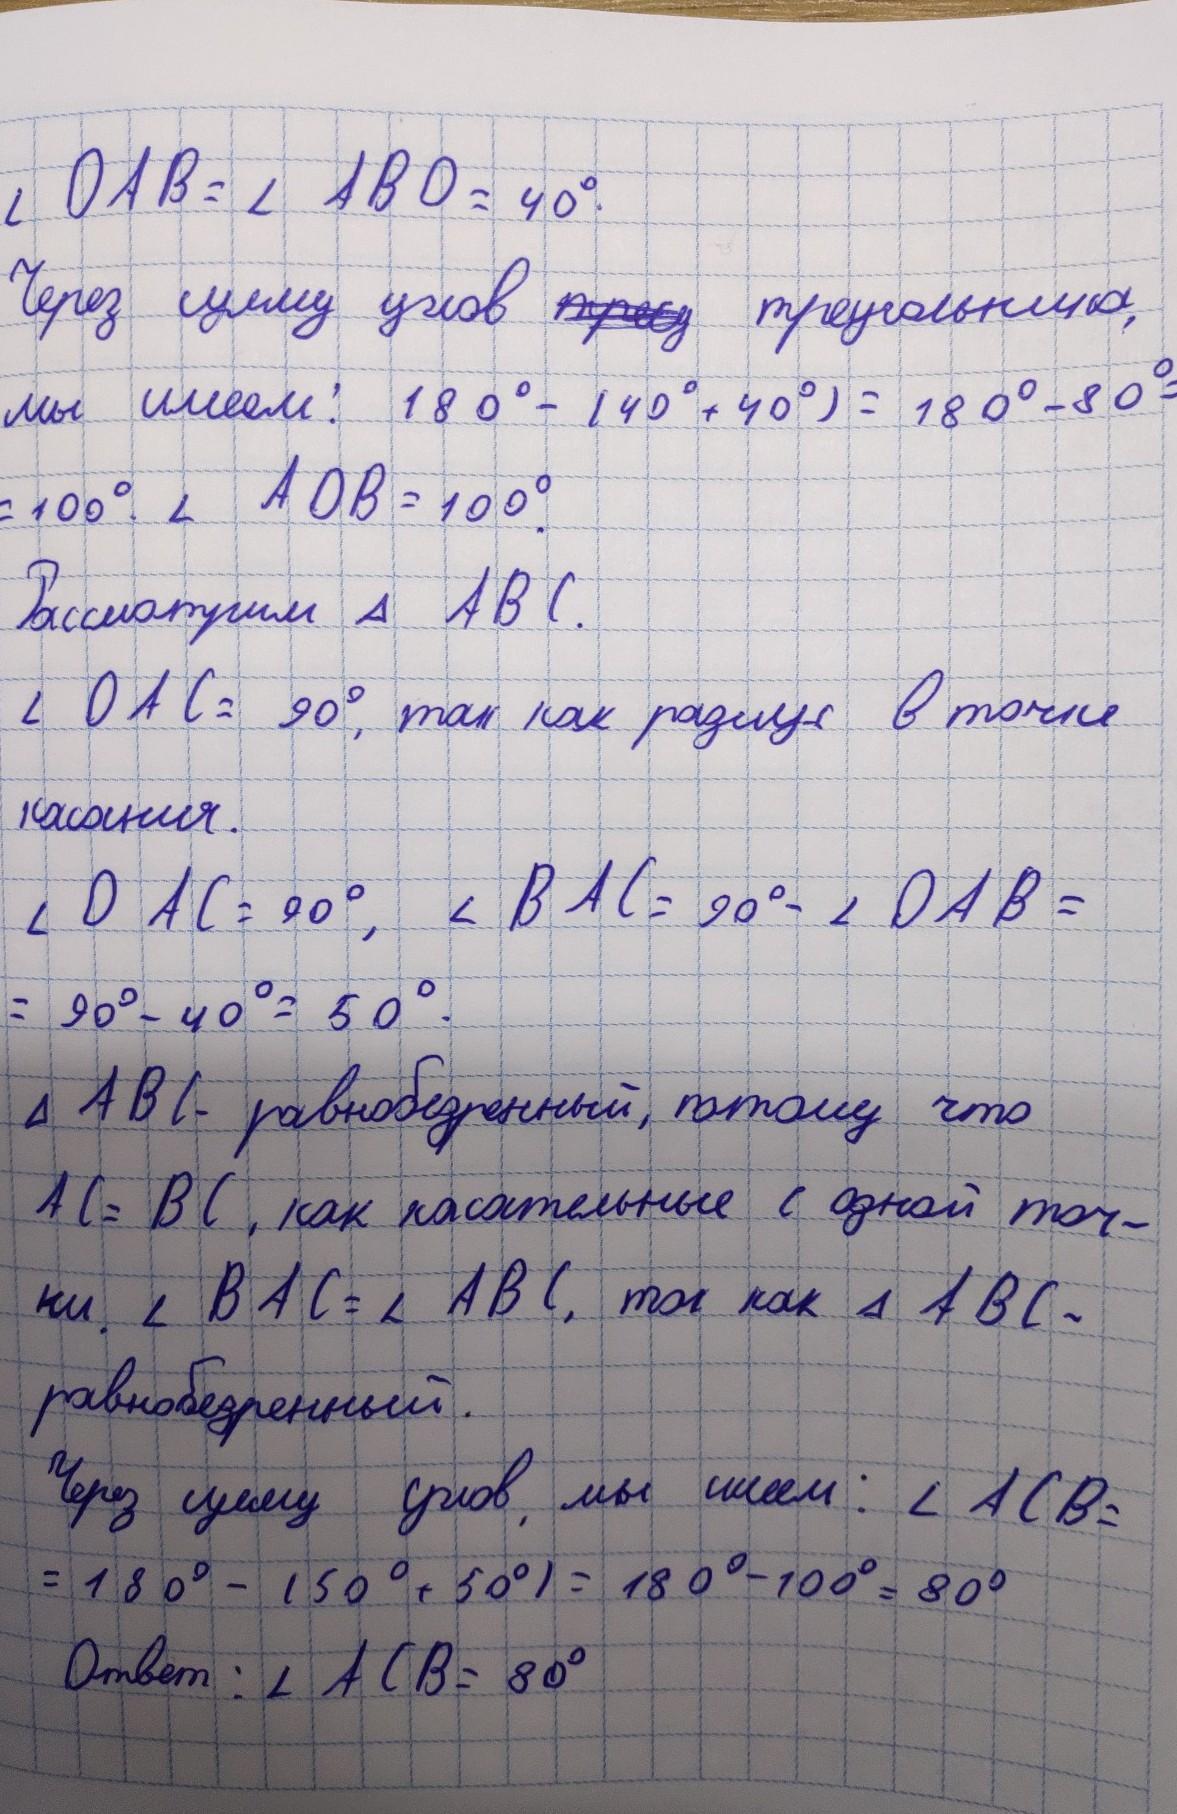 ∠ OAB = ∠ ABO = 40°.
Через сумму углов треугольника,
мы имеем: 180° - (40° + 40°) = 180° - 80° =
= 100°. ∠ AOB = 100°.
Рассмотрим Δ ABC.
∠ OAC = 90°, так как радиус в точке
касания.
∠ OAC = 90°, ∠ BAC = 90° - ∠ OAB =
= 90° - 40° = 50°.
Δ ABC - равнобедренный, потому что
AC = BC, как касательные с одной точ-
ки. ∠ BAC = ∠ ABC, так как Δ ABC -
равнобедренный.
Через сумму углов, мы имеем: ∠ ACB =
= 180° - (50° + 50°) = 180° - 100° = 80°
Ответ: ∠ ACB = 80°